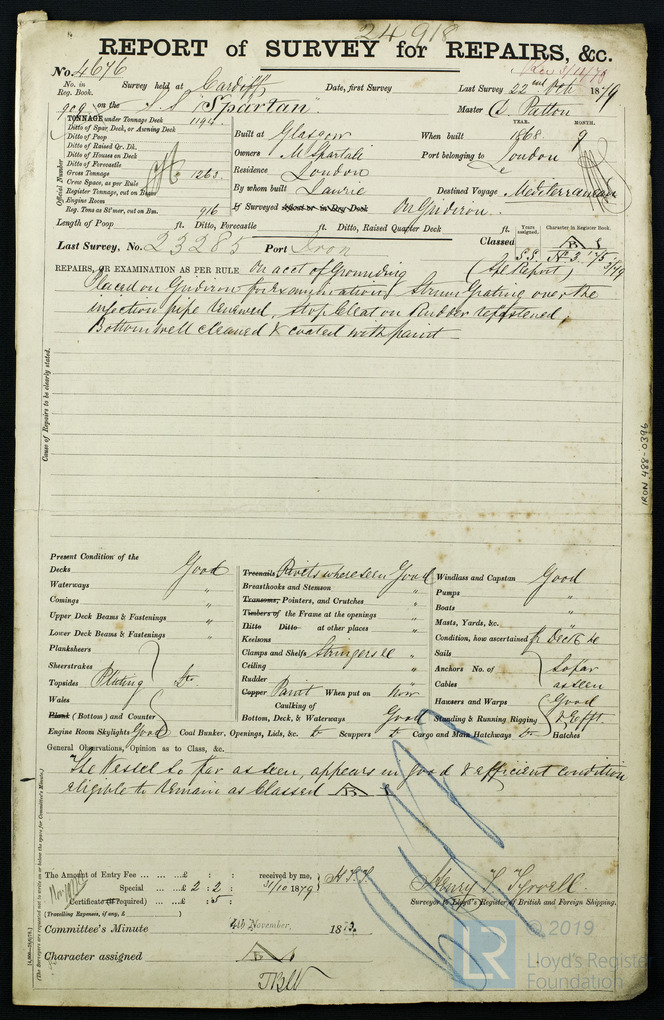 24918
REPORT of SURVEY for REPAIRS, &c.
No. 4676
No. in Reg. Book. Survey held at Cardiff Date, first Survey Last Survey 22nd Octr 1879
909 on the S.S. "Spartan" Master Patton
TONNAGE under Tonnage Deck
Ditto of Spar, Deck, or Awning Deck
Ditto of Poop
Ditto of Raised Qr. Dk.
Ditto of Houses on Deck
Ditto of Forecastle
Gross Tonnage 1263
Crew Space, as per Rule
Register Tonnage, cut on Beam
Engine Room
Reg. Tons as St'mer, cut on Bm. 916
Official Number
YEAR. MONTH.
Built at Glasgow When built 1868 9
Owners M Spartali Port belonging to London
Residence London
By whom built Lawrie Destined Voyage Mediterranean
If Surveyed Afloat or in Dry Dock On Gridiron
Length of Poop ft. Ditto, Forecastle ft. Ditto, Raised Quarter Deck ft.
Years assigned. Character in Register Book.
Classed
Last Survey, No. 23285 Port Iron
REPAIRS, OR EXAMINATION AS PER RULE, On acct of Grounding (Spl Report)
Placed on Gridiron for Examination, Strum Grating over the
injection pipe renewed, Stop Cleat on Rudder refastened
Bottom well cleaned & coated with paint
Cause of Repairs to be clearly stated.
IRON 488-0396
Present Condition of the
Decks Good
Waterways "
Comings "
Upper Deck Beams & Fastenings "
Lower Deck Beams & Fastenings "
Planksheers
Sheerstrakes
Topsides Plating Do
Wales
Plank (Bottom) and Counter
Engine Room Skylights Good Coal Bunker, Openings, Lids, &c. Do Scuppers Do Cargo and Main Hatchways Do Hatches
Treenails Rivets where seen Good
Breasthooks and Stemson "
Transoms, Pointers, and Crutches "
Timbers of the Frame at the openings "
Ditto Ditto at other places "
Keelsons "
Clamps and Shelfs Stringers &c "
Ceiling "
Rudder "
Copper Paint When put on Now
Caulking of
Bottom, Deck, & Waterways Good
Windlass and Capstan Good
Pumps "
Boats "
Masts, Yards, &c. "
Condition, how ascertained fr Deck &c
Sails
Anchors No. of So far
Cables as seen
Hawsers and Warps Good
Standing & Running Rigging & Efft.
General Observations, Opinion as to Class, &c.
The Vessel so far as seen, appears in good & efficient condition
eligible to remain as Classed B 1
The Amount of Entry Fee ... ... ... £ : : received by me, H.S.T.
Special ... ... £ 2 : 2 : 31/10 1879
Certificate (if required) ... £ : 5 :
(Travelling Expenses, if any, £ )
Henry S. Tyrrell.
Surveyor to Lloyd's Register of British and Foreign Shipping.
Committee's Minute 4th November, 187
Character assigned B 1
(The Surveyors are requested not to write on or below the space for Committee's Minute.)
© 2019
LR
Lloyd's Register
Foundation